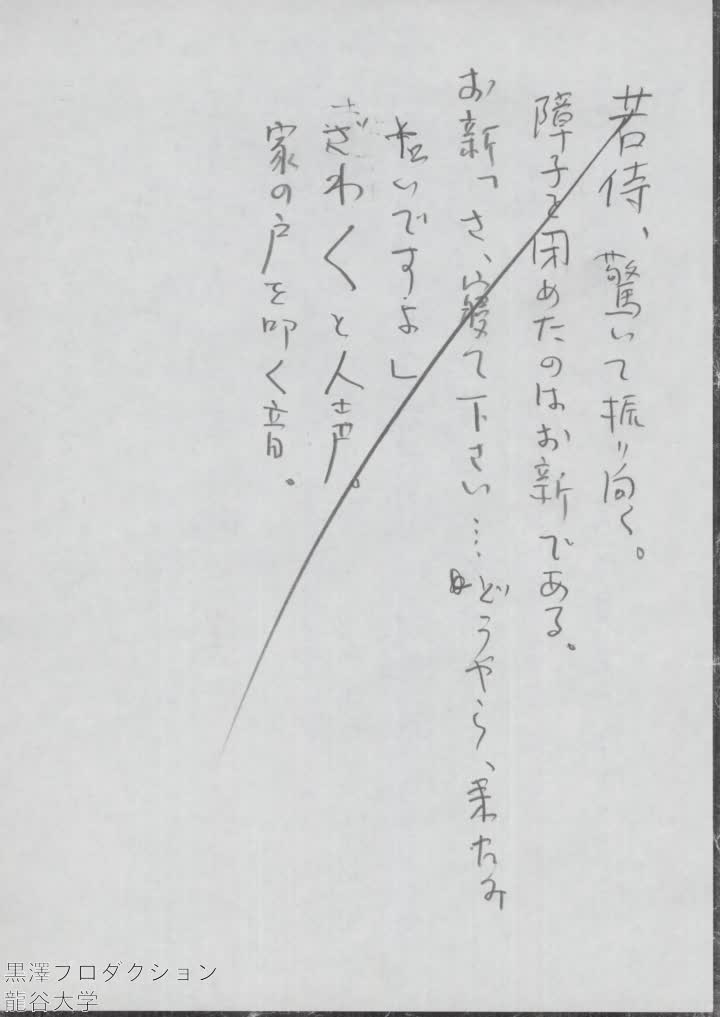 若侍、驚いて振り向く。
障子を閉めたのはお新である。
お新「さ、寝て下さい…どうやら、来たみ
たいですよ」
ざわ〱と人声。
家の戸を叩く音。
黒澤プロダクション
龍谷大学